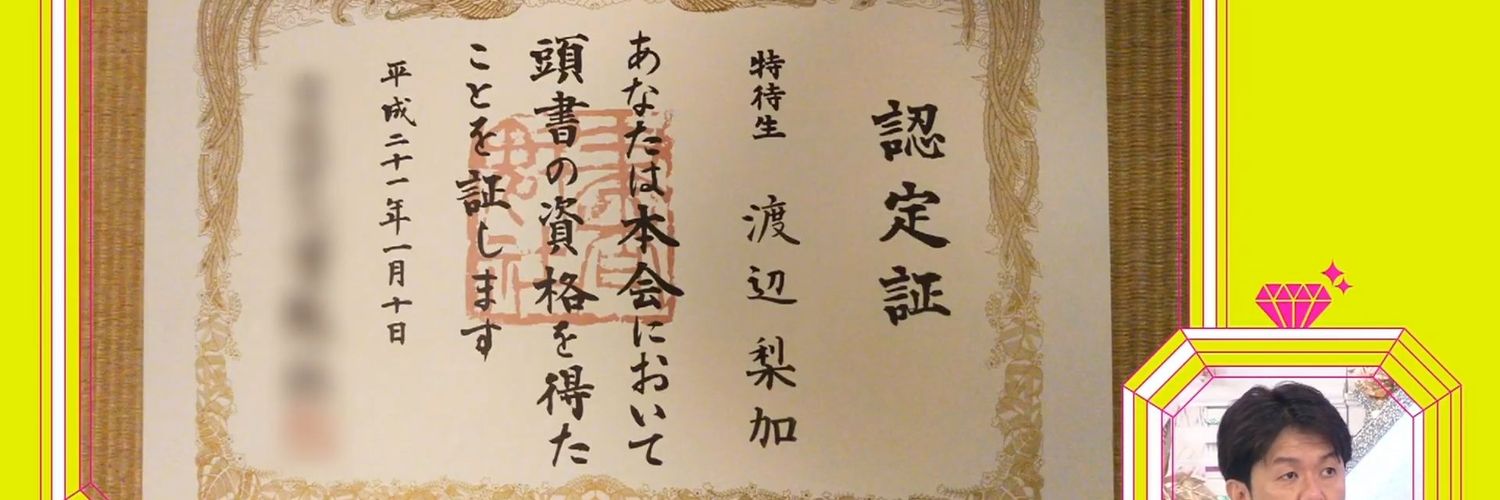 認定証
特待生 渡辺梨加
あなたは本会において
頭書の資格を得た
ことを証します
平成二十一年一月十日